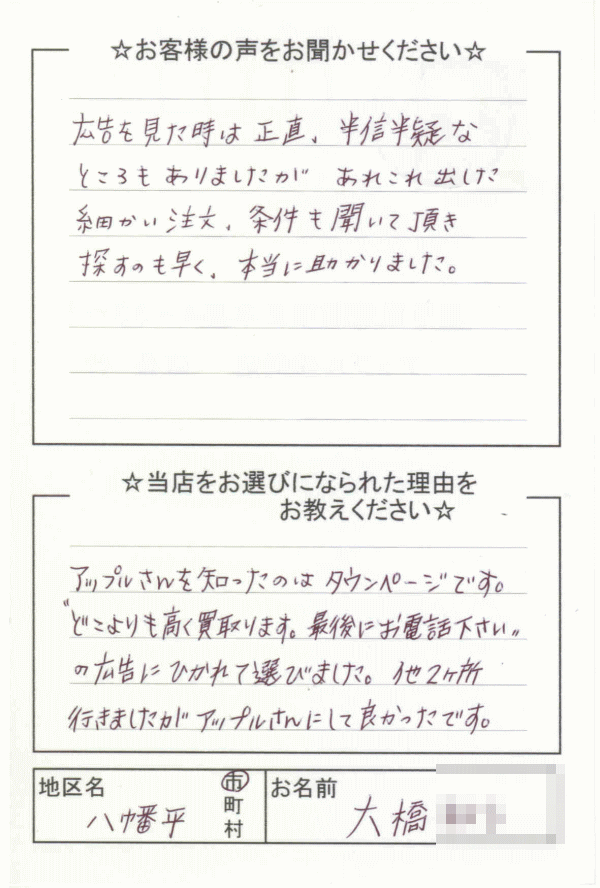 ☆お客様の声をお聞かせください☆
広告を見た時は正直、半信半疑な
ところもありましたが あれこれ出した
細かい注文、条件も聞いて頂き
探すのも早く、本当に助かりました。
☆当店をお選びになられた理由を
お教えください☆
アップルさんを知ったのはタウンページです。
"どこよりも高く買取ります。最後にお電話下さい"
の広告にひかれて選びました。他2ヶ所
行きましたがアップルさんにして良かったです。
地区名 八幡平 市町村 お名前 大橋